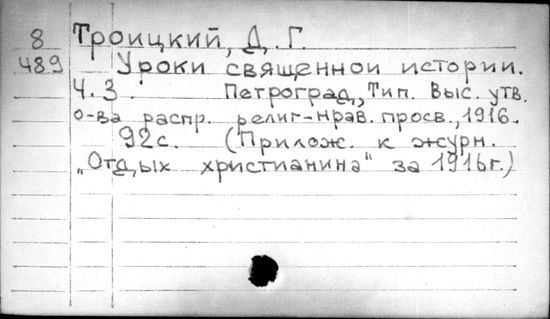 8 Троицкий, Д. Г.
489 Уроки священной истории.
Ч. 3. Петроград, Тип. Выс. утв.
о-ва распр. религ-нрав. просв., 1916.
92с. (Прилож. к журн.
„Отдых христианина" за 1916г.)